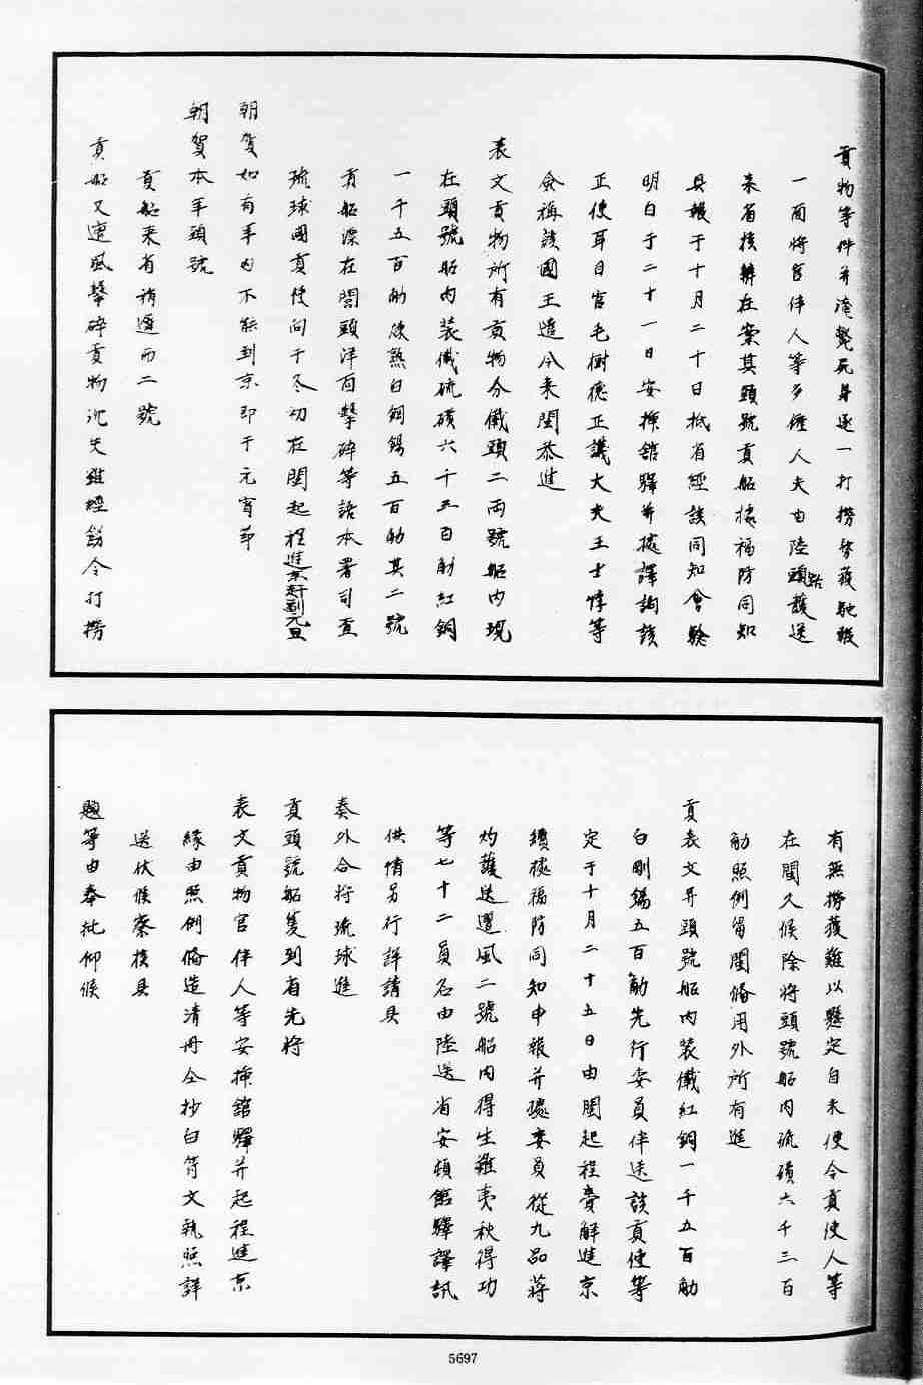 貢物等件并淹斃死身逐一打撈務獲馳報
一面將官伴人等多僱人夫由陸路護送
來省核辦在案其頭號貢船據福防同知
具報于十月二十日抵省經該同知會驗
明白于二十一日安揷舘驛并據譯詢該
正使耳目官毛樹德正議大夫王士惇等
僉稱該國王遣令來閩恭進
表文貢物所有貢物分儎頭二兩號船內現
在頭號船內装儎硫磺六千三百觔紅銅
一千五百觔煉熟白銅錫五百觔其二號
貢船漂在閩頭洋面擊碎等語本署司查
琉球國貢使向于冬初在閩起程進京赶到元旦
朝賀如有年內不能到京即于元宵節
朝賀本年頭號
貢船來省稍遲而二號
貢船又遭風擊碎貢物沉失雖經飭令打撈
有無撈獲難以懸定自未便令貢使人等
在閩久候除將頭號船內硫磺六千三百
觔照例留閩備用外所有進
貢表文并頭號船內装儎紅銅一千五百觔
白剛錫五百觔先行委員伴送該貢使等
定于十月二十五日由閩起程賫解進京
續據福防同知申報并據委員從九品蔣
灼護送遭風二號船內得生難夷秋得功
等七十二員名由陸送省安頓舘驛譯訊
供情另行詳請具
奏外合將琉球進
貢頭號船隻到省先將
表文貢物官伴人等安揷舘驛并起程進京
緣由照例備造清冊仝抄白符文執照詳
送伏候察核具
題等由奉批仰候
5697